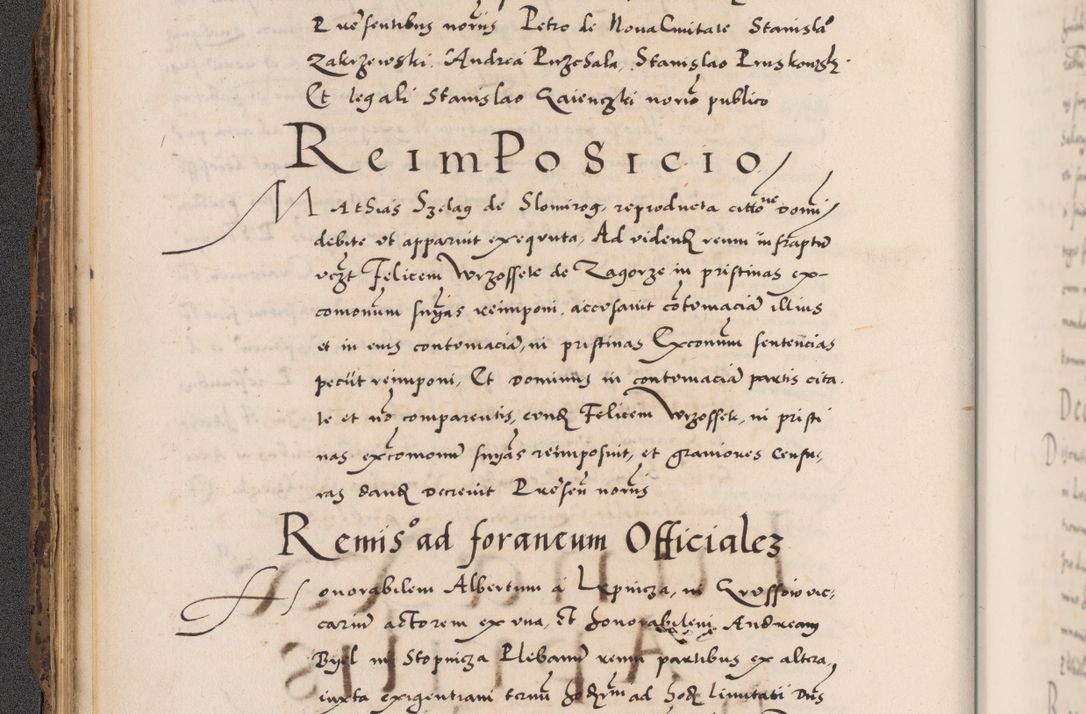 Presentibus noriis Petro de Noua Ciuitate Stanislao
Zakrzewski. Andrea Przechala. Stanislao Pruskowsky.
Et legali Stanislao Gaienczki norio publico
Reimposicio
Mathias Szelag de Slomirog, reproducta cittone domi
debite vt apparuit exequuta, Ad vidend reum infraptu
vczt Felicem Wrzossek de Zagorze in pristinas ex-
comonum snias reimponi, accusauit cotumacia illius
et in eius contumacia, in pristinas Exconum sentencias
peciit reimponi, Et dominus in contumacia partis cita
te et no comparentis, eund Felicem Wrzossek, in pristi
nas excomonu snias reimposuit, et grauiores censu,
ras dand decreuit Presen noriis
Remiso ad foraneum Officialez
Honorabilem Albertum a Lepnicza, in Grossow vic,
cariu actorem ex vna, Et honorabilem Andream
Byel in Stopnicza Plebanu reum partibus ex altera,
iuxta exigentiam termi hodierni ad hod limitati Dns